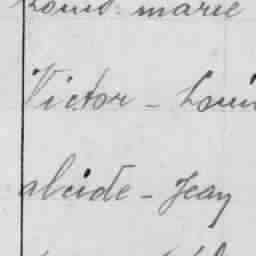 Louis marie
Victor - Louis
alcide - Jean